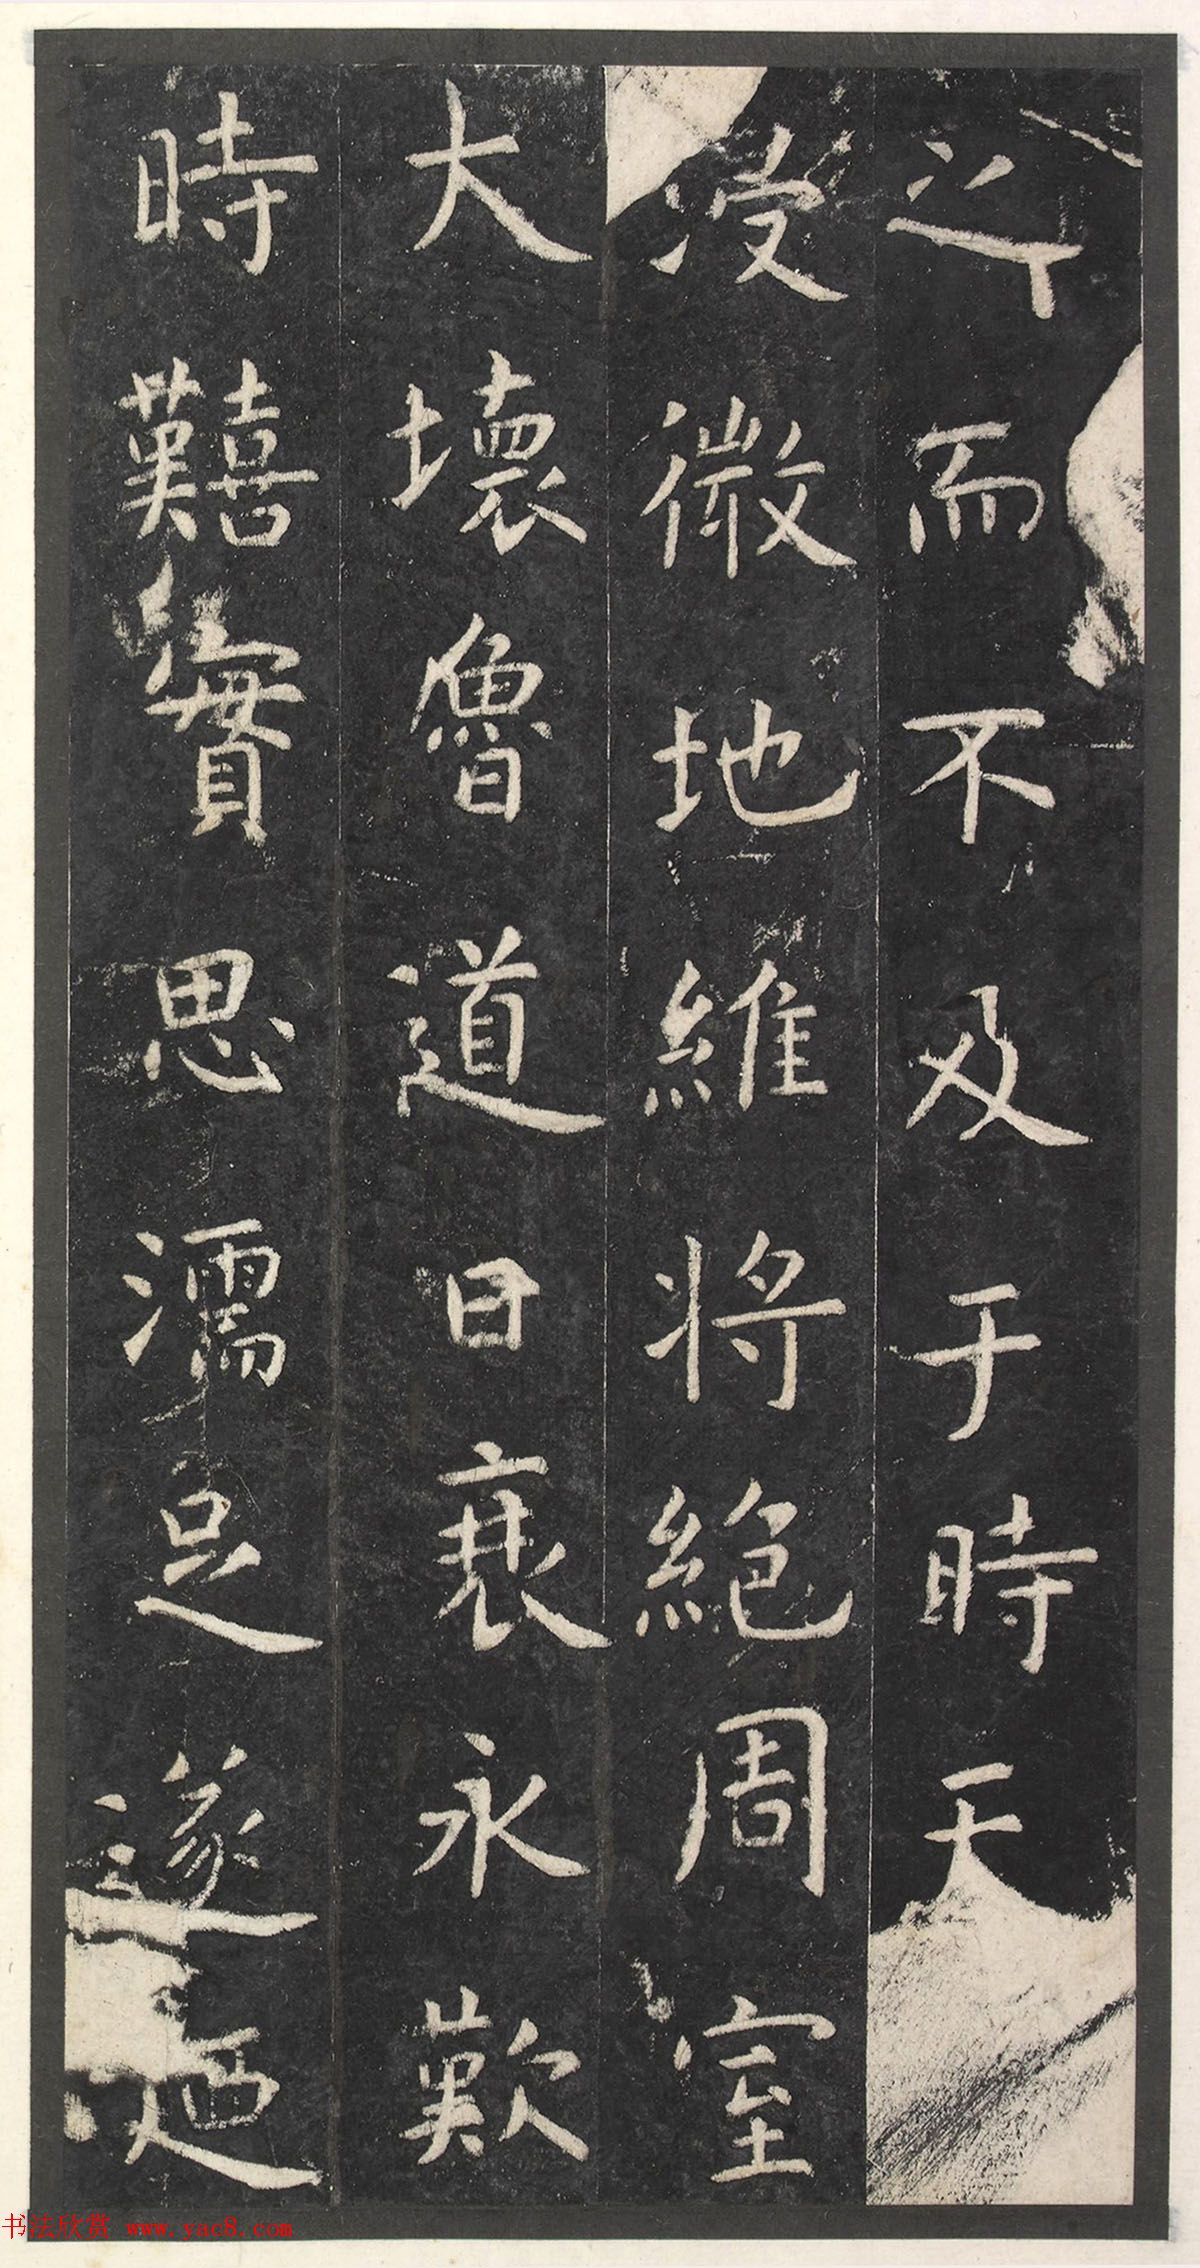 之而不及于時天
没微地維將絕周室
大壞魯道日衰永歎
時囏實思濡足遂廼
书法欣赏 www.yac8.com